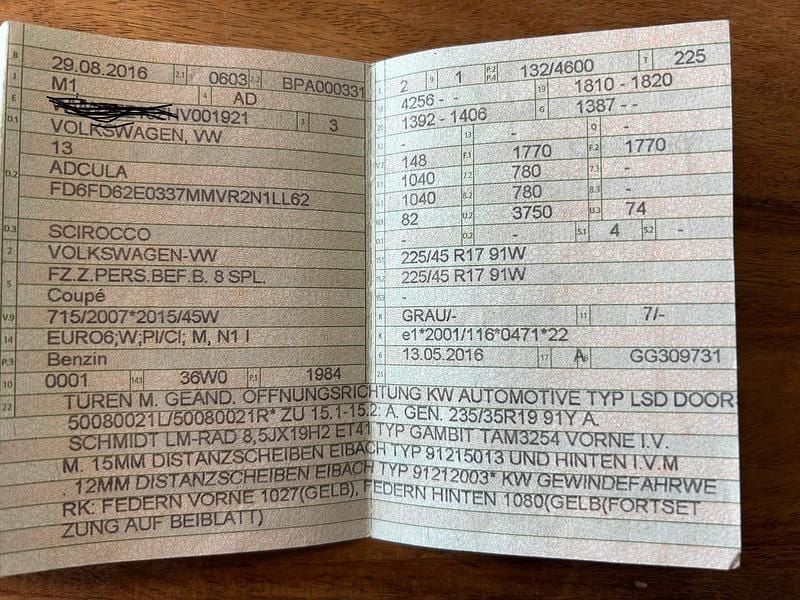 B 29.08.2016 2.1 0603 2.2 BPA000331
J M1 4 AD
E IV001921 3 3
D.1 VOLKSWAGEN, VW
13
D.2 ADCULA
FD6FD62E0337MMVR2N1LL62
D.3 SCIROCCO
2 VOLKSWAGEN-VW
5 FZ.Z.PERS.BEF.B. 8 SPL.
Coupé
V.9 715/2007*2015/45W
14 EURO6;W;PI/CI; M, N1 I
P.3 Benzin
10 0001 14.1 36W0 P.1 1984
L 2 9 1 P.2 P.4 132/4600 T 225
18 4256 - - 19 1810 - 1820
20 1392 - 1406 G 1387 - -
- 13 - Q -
148 F.1 1770 F.2 1770
1040 7.2 780 7.3 -
1040 8.2 780 8.3 -
82 U.2 3750 U.3 74
- O.2 - S.1 4 S.2 -
225/45 R17 91W
225/45 R17 91W
-
R GRAU/- 11 7/-
K e1*2001/116*0471*22
6 13.05.2016 17 A GG309731
21
22 TÜREN M. GEÄND. ÖFFNUNGSRICHTUNG KW AUTOMOTIVE TYP LSD DOOR-
50080021L/50080021R* ZU 15.1-15.2: A. GEN. 235/35R19 91Y A.
SCHMIDT LM-RAD 8,5JX19H2 ET41 TYP GAMBIT TAM3254 VORNE I.V.
M. 15MM DISTANZSCHEIBEN EIBACH TYP 91215013 UND HINTEN I.V.M
. 12MM DISTANZSCHEIBEN EIBACH TYP 91212003* KW GEWINDEFAHRWE
RK: FEDERN VORNE 1027(GELB), FEDERN HINTEN 1080(GELB(FORTSET
ZUNG AUF BEIBLATT)